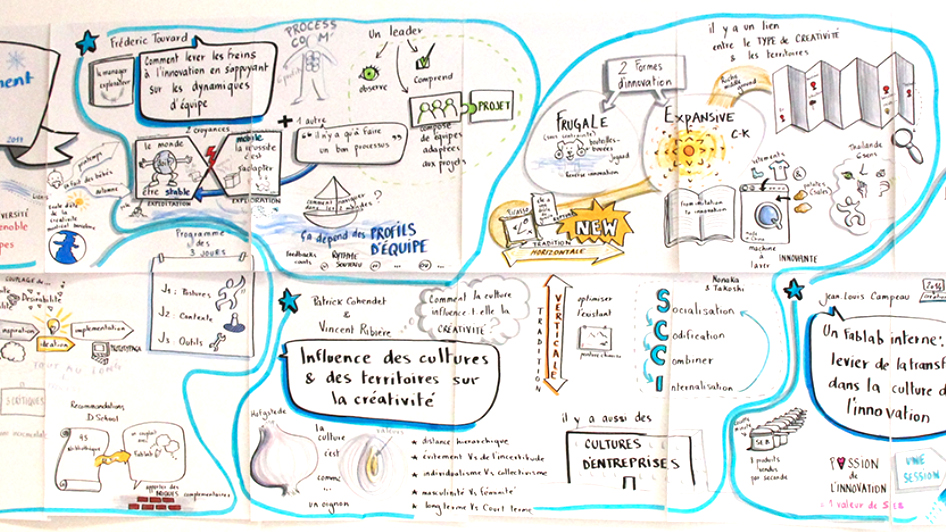 Frédéric Touvard
Comment lever les freins
à l'innovation en s'appuyant
sur les dynamiques
d'équipe
le manager
explorateur
PROCESS
COM'
Un leader
observe
Comprend
PROJET
composé
d'équipes
adaptées
aux projets
2 croyances
le monde
être stable
EXPLOITATION
mobile
la réussite
c'est
s'adapter
EXPLORATION
+ 1 autre
"il n'y a qu'à faire
un bon processus"
comment naviguer
dans les 2 mondes ?
Ça dépend des PROFILS
D'ÉQUIPE
feedbacks
courts
RYTHME
SOUTENU
ou
printemps
automne
école d'été
de la
créativité
Programme
des
3 JOURS
J1 : Postures
J2 : Contexte
J3 Outils
il y a un lien
entre le TYPE de CRÉATIVITÉ
& les territoires
2 Formes
d'innovation
FRUGALE
(sous contrainte)
bouteilles
Jugaad
Reverse innovation
EXPANSIVE
C-K
Picasso
NEW
TRADITION
HORIZONTALE
from imitation
to innovation
vêtements
&
patates
(sales)
made in
China
machine
à laver
INNOVANTE
Thaïlande
6 sens
COUPLAGE
Désirabilité
inspiration
idéation
implémentation
TOUT AU LONG
S CRITIQUES
Recommandations
D.School
bibliothèque
un endroit
Fablab
apporter des
BRIQUES complémentaires
Patrick Cohendet
&
Vincent Ribière
Comment la culture
influence t-elle la
CRÉATIVITÉ ?
Influence des cultures
& des territoires sur
la créativité
Hofstede
la
culture
c'est
comme
un oignon
valeurs
★ distance hiérarchique
★ évitement Vs de l'incertitude
★ individualisme Vs collectivisme
★ masculinité Vs féminité
★ long terme Vs court terme
TRADITION
VERTICALE
optimiser
l'existant
Nonaka
& Takoshi
Socialisation
Codification
Combiner
Internalisation
il y a aussi des
CULTURES
D'ENTREPRISES
Jean Louis Campeau
Un Fablab interne:
levier de la transf
dans la culture d
l'innovation
SEB
produits
vendus
par seconde
PASSION
de
L'INNOVATION
1 valeur de SEB
UNE
SESSION